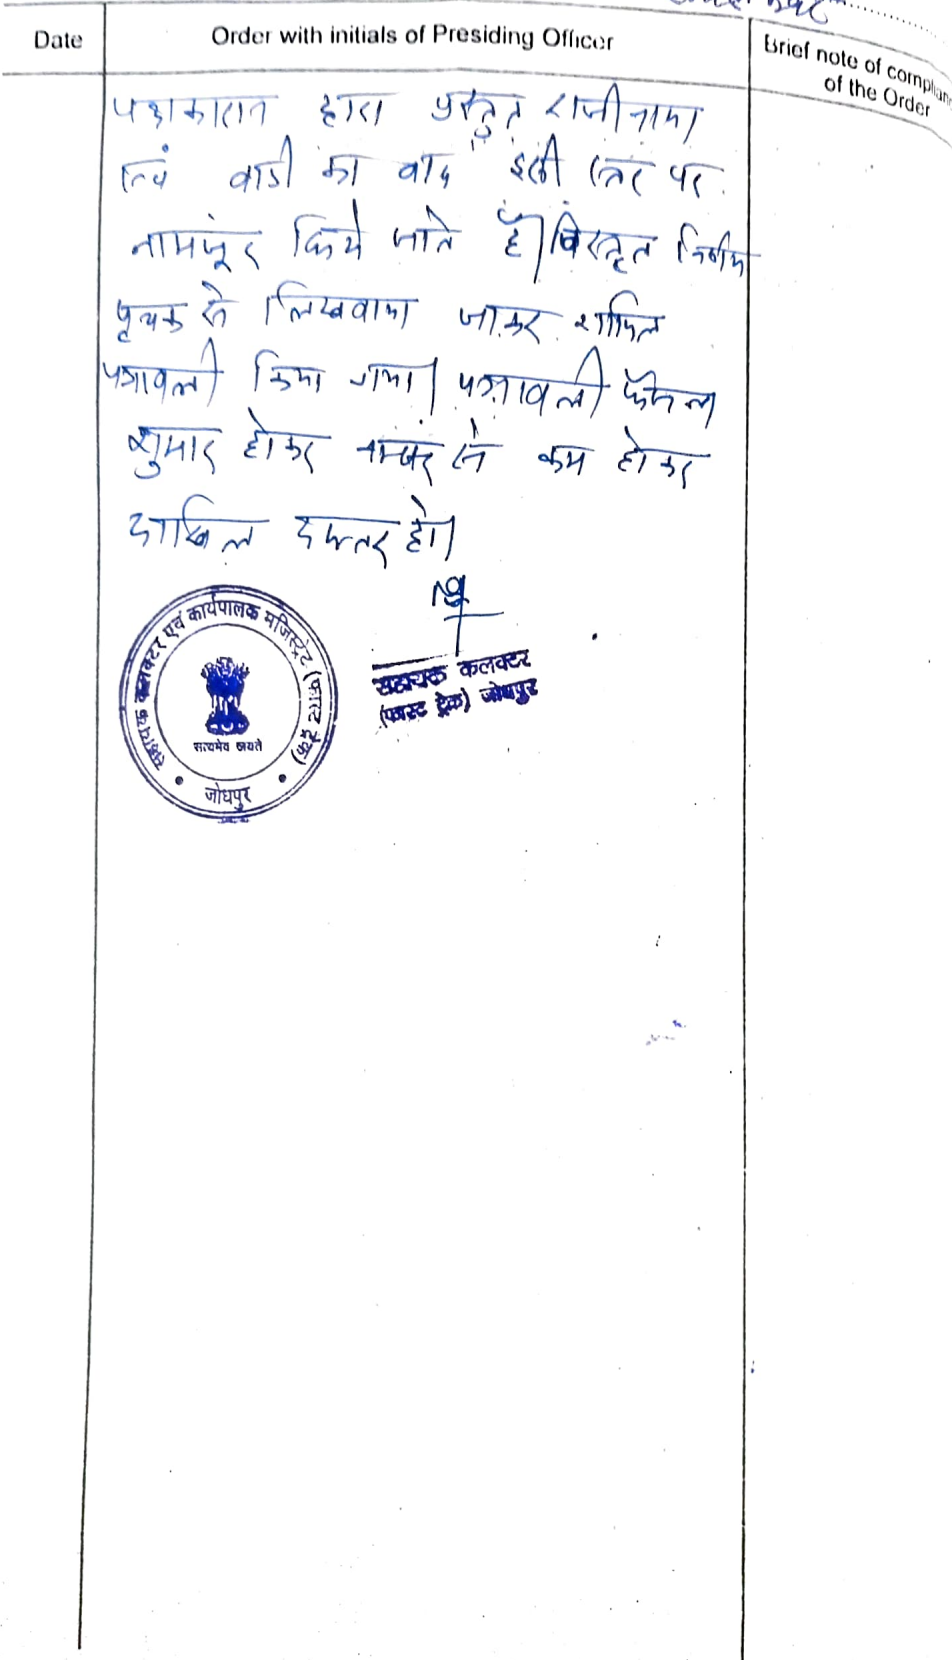 Date
Order with initials of Presiding Officer
Brief note of complian
of the Order
पक्षकारान द्वारा प्रस्तुत राजीनामा
एवं वादी का वाद इसी स्तर पर
नामंजूर किये जाते है। विस्तृत निर्णय
पृथक से लिखवाया जाकर शामिल
पत्रावली किया गया। पत्रावली फैसल
शुमार होकर नम्बर से कम होकर
दाखिल दफ्तर हो।
सहायक कलक्टर एवं कार्यपालक मजिस्ट्रेट (फास्ट ट्रेक)
सत्यमेव जयते
जोधपुर
सहायक कलक्टर
(फास्ट ट्रेक) जोधपुर